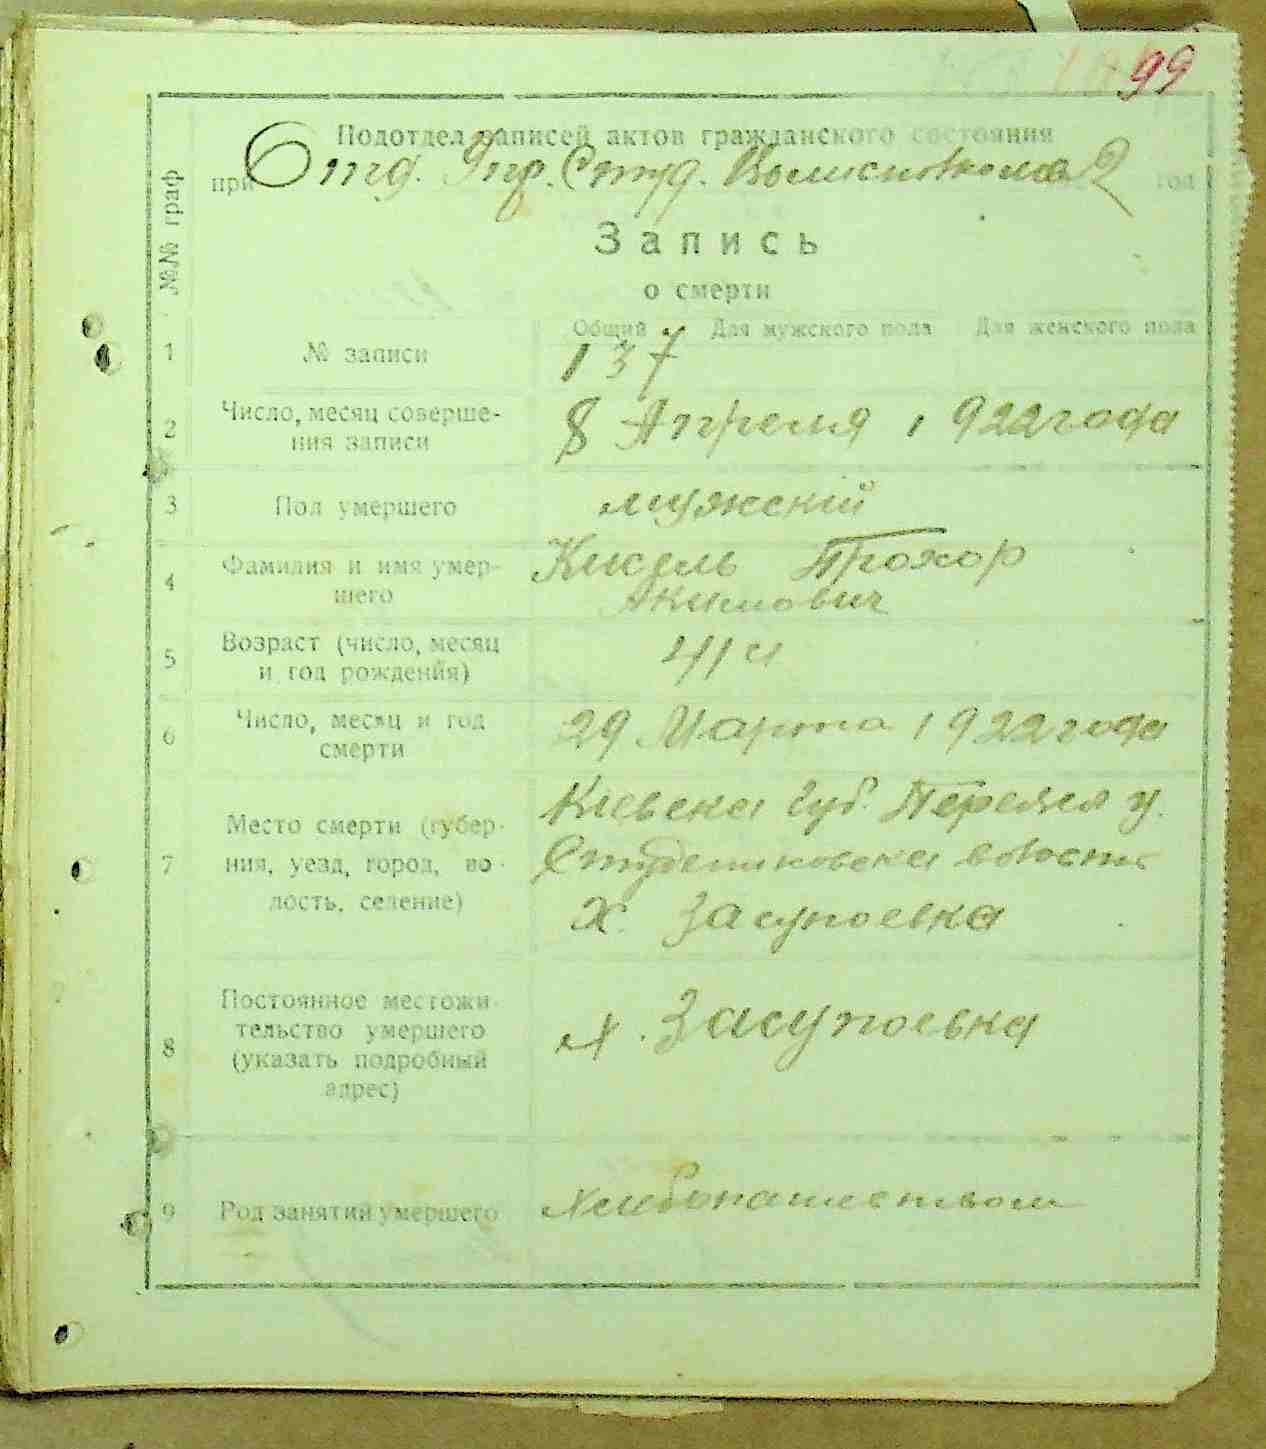 99
Подотдел записей актов гражданского состояния
при Отд. Упр. Студ. Волисполкома год
№№ граф
Запись
о смерти
Общий Для мужского пола Для женского пола
1 № записи 137
2 Число, месяц соверше-
ния записи 8 Апреля 1922 года
3 Пол умершего мужскій
4 Фамилия и имя умер-
шего Кисель Прохор
Акимович
5 Возраст (число, месяц
и год рождения) 41
6 Число, месяц и год
смерти 29 Марта 1922 года
7 Место смерти (губер-
ния, уезд, город, во-
лость, селение) Киевска губ. Переясл у.
Студениковска волость
х. Засупоевка
8 Постоянное местожи-
тельство умершего
(указать подробный
адрес) х. Засупоевка
9 Род занятий умершего Хлебопашеством